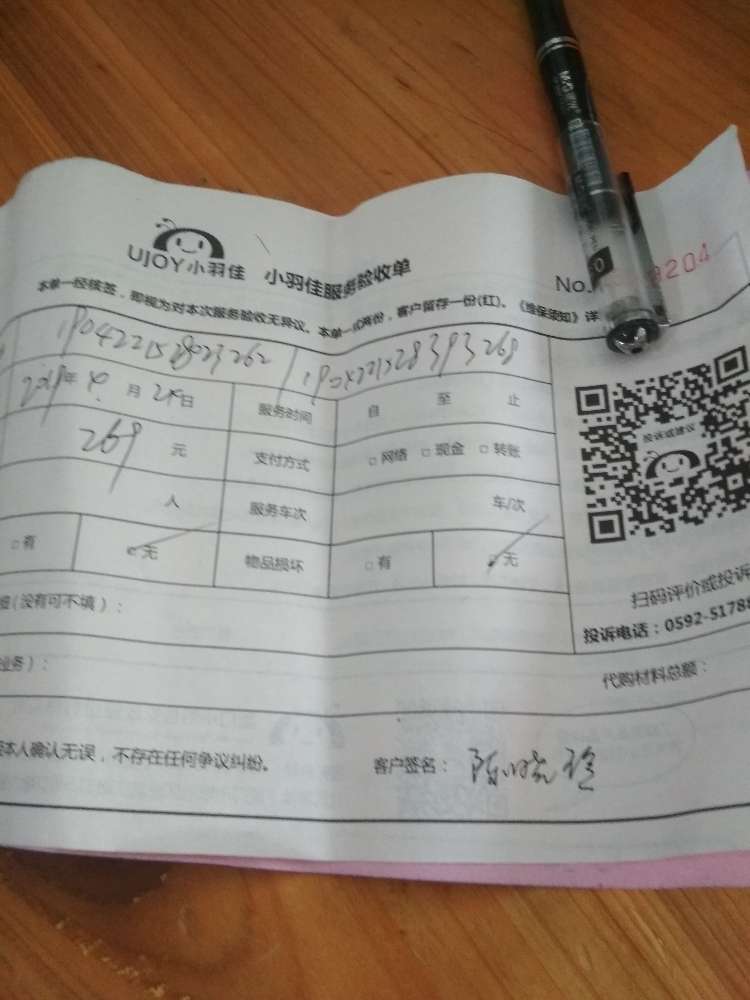 UJOY小羽佳 小羽佳服务验收单
No. 9204
本单一经核签，即视为对本次服务验收无异议。本单一式两份，客户留存一份(红)。《维保须知》详
2019年 月 24日 服务时间 自 至 止
269 元 支付方式 □网络 □现金 □转账
人 服务车次 车/次
□有 □无 物品损坏 □有 □无
投诉或建议
扫码评价或投诉
(没有可不填)：
投诉电话：0592-5178
业务)：
代购材料总额：
本人确认无误，不存在任何争议纠纷。 客户签名： 陈晓玲
M&G